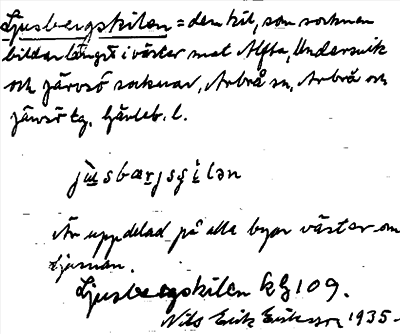 Ljusbergskilen = den kil, som socknen
bildar längst i väster mot Alfta, Undersvik
och Järvsö socknar, Arbrå sn, Arbrå och
Järvsö tg. Gävleb. l.
Är uppdelad på alla byar väster om
Ljusnan.
Ljusbergskilen kg 109.
Nils Erik Eriksson 1935.